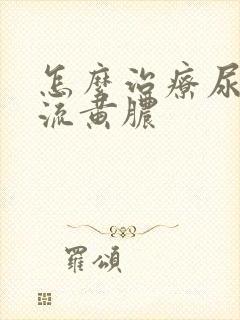 怎麼治療尿
流黄膿
羅頌